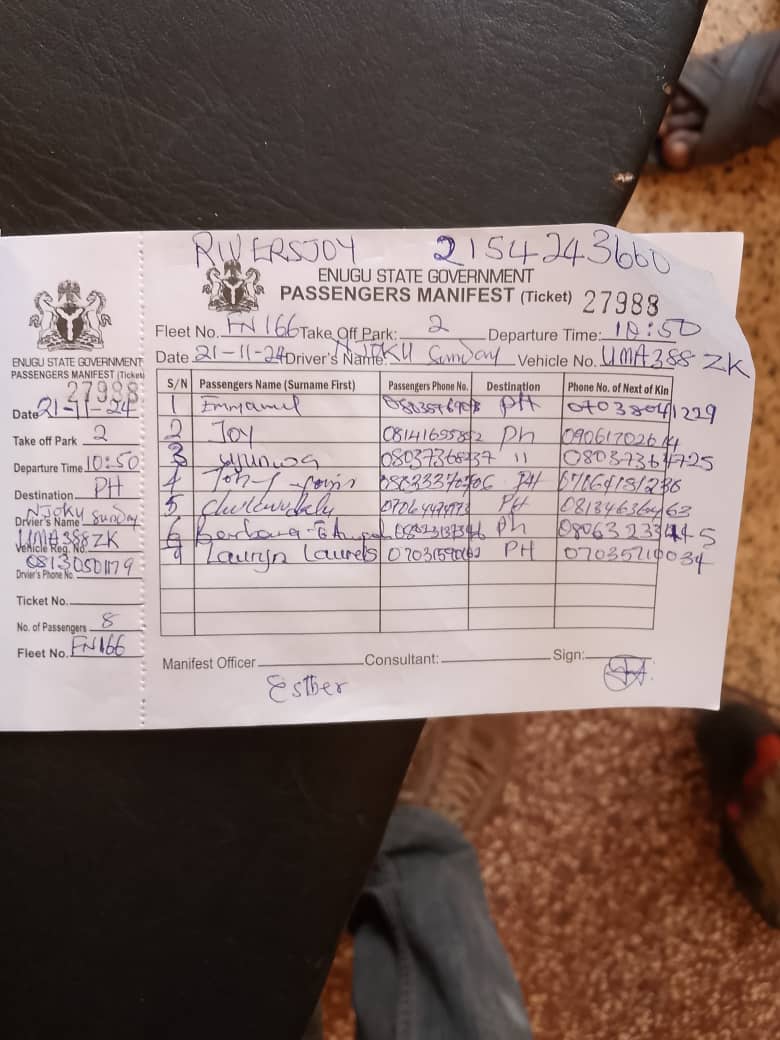 RIVERSJOY 2154243660
ENUGU STATE GOVERNMENT
PASSENGERS MANIFEST (Ticket) 27988
Fleet No. FN 166 Take Off Park: 2 Departure Time: 10:50
Date 21-11-24 Driver's Name: NJOKU Sunday Vehicle No. UMA388 ZK
S/N Passengers Name (Surname First) Passengers Phone No. Destination Phone No. of Next of Kin
1 Emmanuel PH 07038041229
2 Joy Ph
3 08037368237 11 08037364725
4 PH
5 PH 08134636463
6 Ph
9 Lauryn Laurels PH 07035710034
Manifest Officer Consultant: Sign:
Esther
ENUGU STATE GOVERNMENT
PASSENGERS MANIFEST (Ticket)
27988
Date 21-11-24
Take off Park 2
Departure Time 10:50
Destination PH
Drvier's Name Njoku Sunday
UMA388ZK
Vehicle Reg. No.
08130501179
Drvier's Phone No.
Ticket No.
No. of Passengers 8
Fleet No. FN166